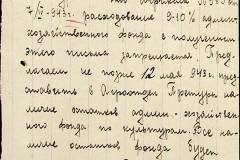 7/IV-943г. расходование 9-10% админ.
хозяйственного фонда с получением
этого письма запрещается. Пред-
лагаем не позже 12 мая 943г. пред-
ставить в Агроотдел Претуры на-
личие остатков админ.-хозяйствен-
ного фонда по культурам. Все на-
личие остатков фонда будет